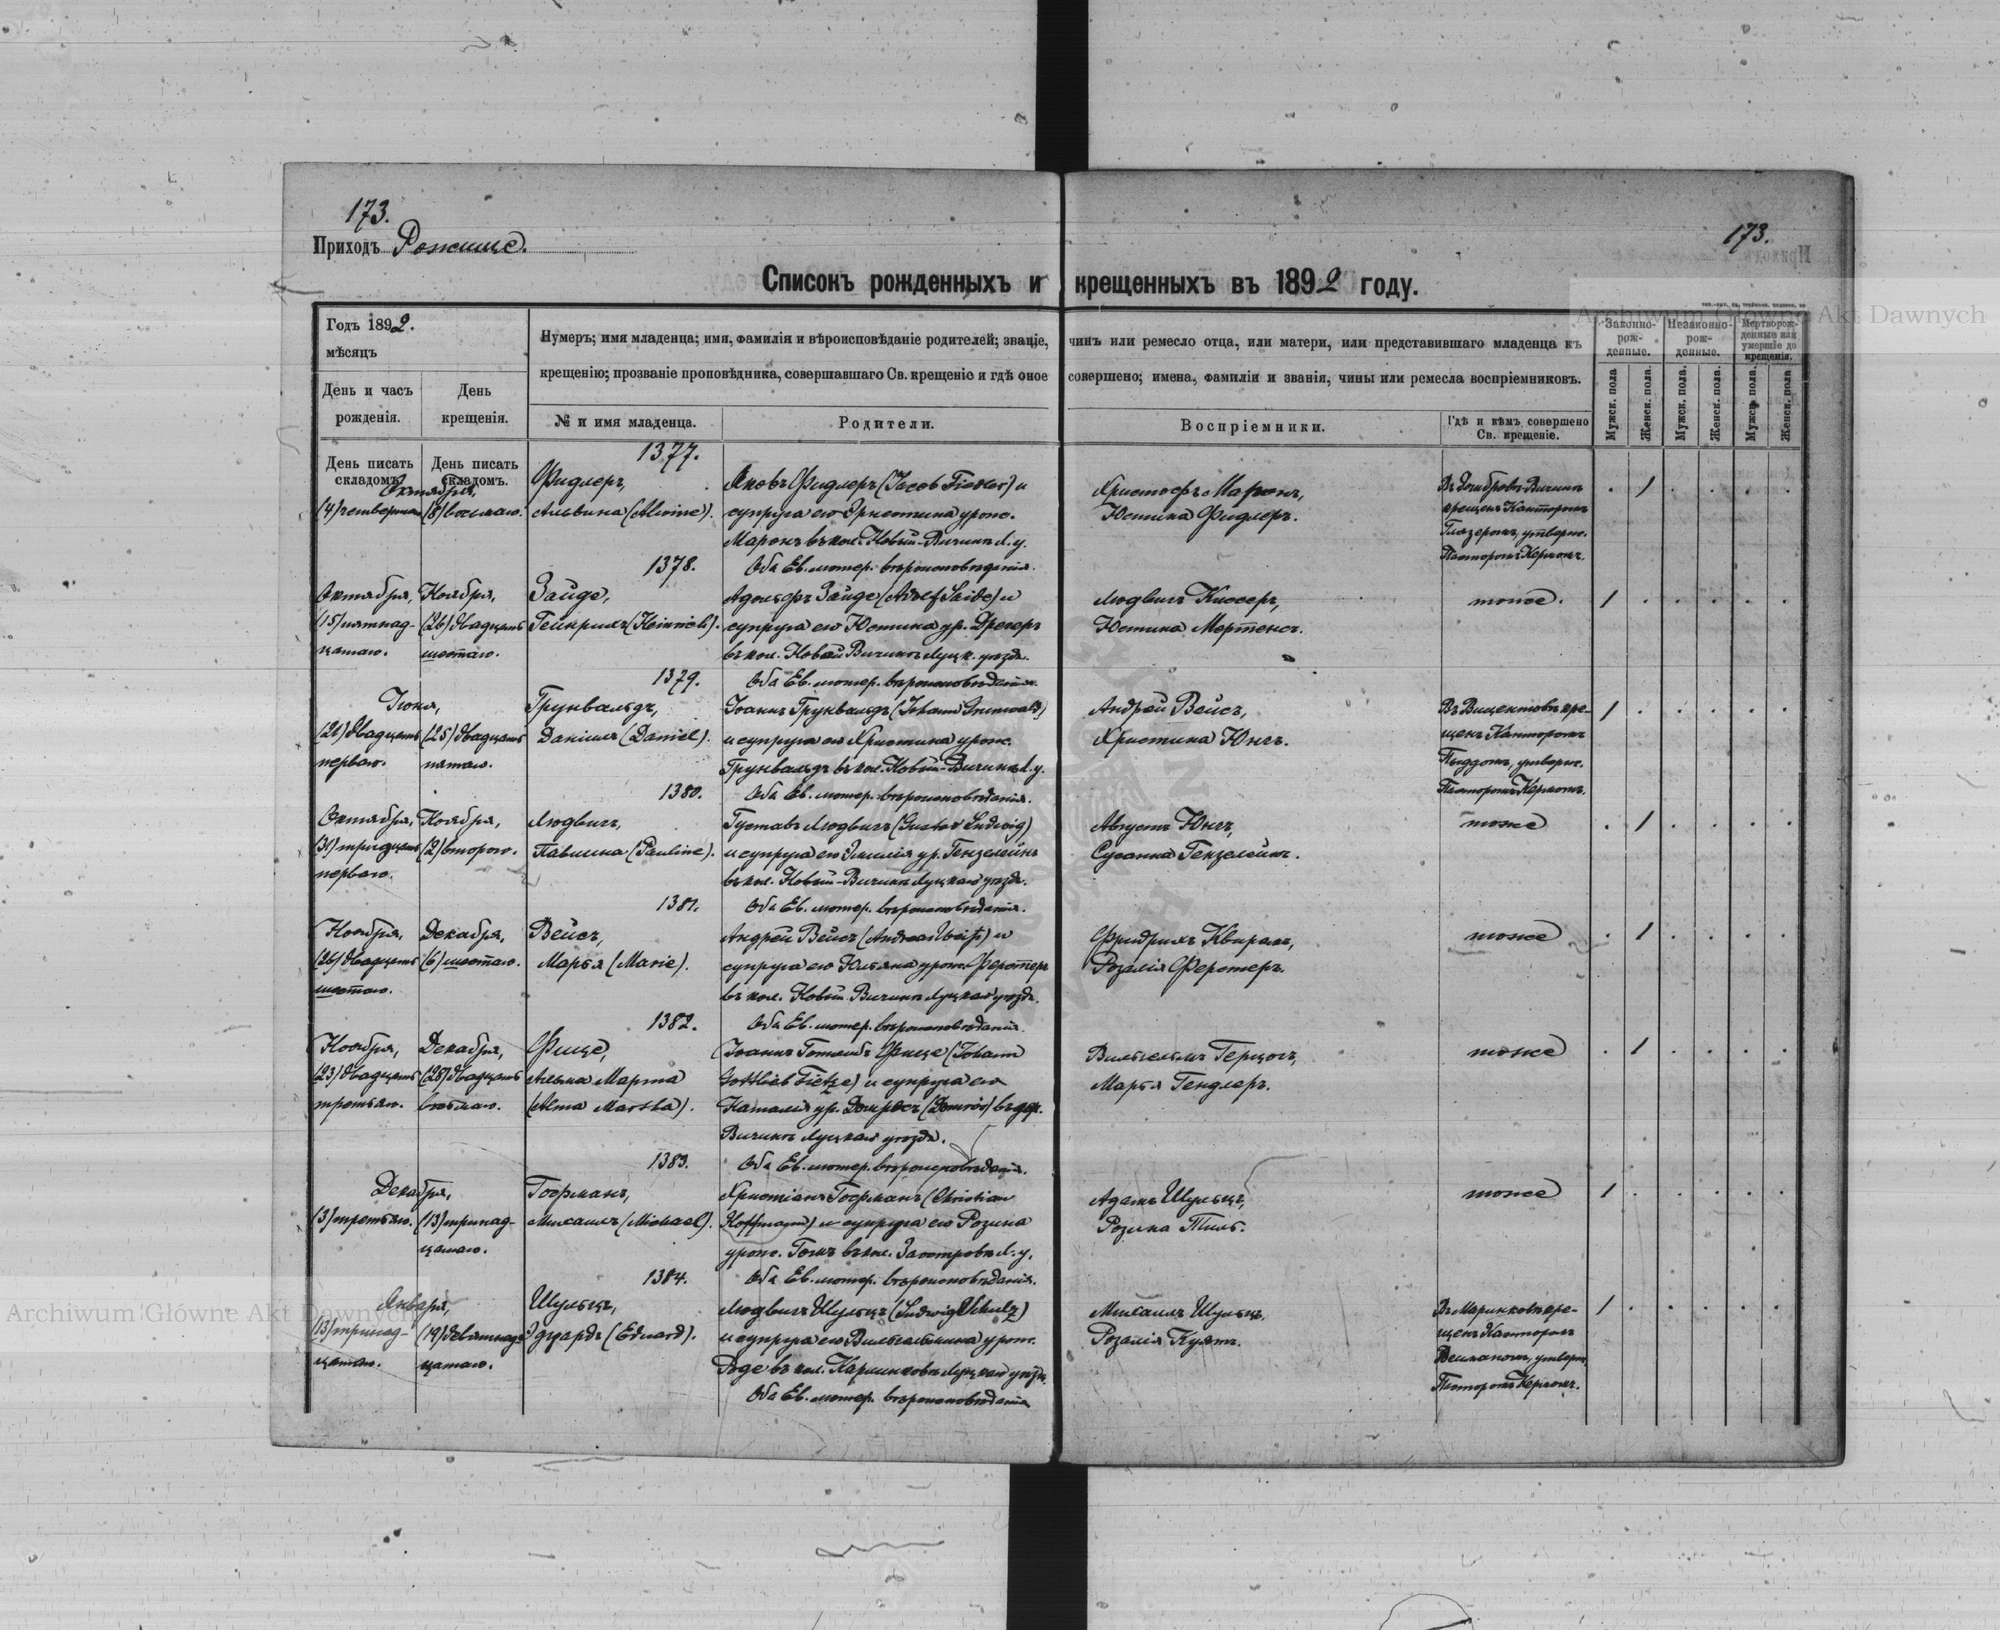 173.
Приходъ Рожище.
173.
Списокъ рожденныхъ и крещенныхъ въ 1892 году.
Годъ 1892.
мѣсяцъ
День и часъ рожденія.
День крещенія.
Нумеръ; имя младенца; имя, фамилія и вѣроисповѣданіе родителей; званіе, чинъ или ремесло отца, или матери, или представившаго младенца къ
крещенію; прозваніе проповѣдника, совершавшаго Св. крещеніе и гдѣ оное совершено; имена, фамиліи и званія, чины или ремесла воспріемниковъ.
№ и имя младенца.
Родители.
Воспріемники.
Гдѣ и кѣмъ совершено Св. крещеніе.
Законно-рож-денные.
Незаконно-рож-денные.
Мертворож-денные или умершіе до крещенія.
Мужск. пола
Женск. пола.
Мужск. пола.
Женск. пола.
Мужск. пола.
Женск. пола
День писать складомъ.
День писать складомъ.
1377.
Октября,
(4) четвертаго
(8) восьмаго.
Фидлеръ,
Альвина (Alwine).
Яковъ Фидлеръ (Jacob Fiedler) и
супруга его Эрнестина урож.
Маронъ въ кол. Новый-Вичинъ Л. у.
Оба Ев. лютер. вѣроисповѣданія.
Христофъ Маронъ,
Юстина Фидлеръ.
крещенъ Канторомъ
Глазеромъ, утверж.
Пасторомъ Кермомъ.
1 
1378.
Октября,
(15) пятнад-
цатаго.
Ноября,
(26) двадцать
шестаго.
Зайде,
Гейнрихъ (Heinrich).
Адольфъ Зайде (Adolf Saide) и
супруга его Юстина ур. Дрегеръ
въ кол. Новый Вичинъ Луцк. уѣзда.
Оба Ев. лютер. вѣроисповѣданія.
Людвигъ Киссеръ,
Юстина Мертенсъ.
тоже.
1
1379.
Іюня,
(21) двадцать
перваго.
(25) двадцать
пятаго.
Грунвальдъ,
Даніилъ (Daniel).
Іоаннъ Грунвальдъ (Johann Grunwald)
и супруга его Христина урож.
Грунвальдъ въ кол. Новый-Вичинъ Л. у.
Оба Ев. лютер. вѣроисповѣданія.
Андрей Вейсъ,
Христина Юнгъ.
Въ Вицентовѣ кре-
щенъ Канторомъ
утверж.
Пасторомъ Кермомъ.
1
1380.
Октября,
(31) тридцать
перваго.
Ноября,
(2) второго.
Людвигъ,
Павлина (Pauline).
Густавъ Людвигъ (Gustav Ludwig)
и супруга его Эмилія ур. Гензелейнъ
въ кол. Новый-Вичинъ Луцкаго уѣзда.
Оба Ев. лютер. вѣроисповѣданія.
Августъ Юнгъ,
Сусанна Гензелейнъ.
тоже
1
1381.
Ноября,
(26) двадцать
шестаго.
Декабря,
(6) шестаго.
Вейсъ,
Марья (Marie).
Андрей Вейсъ (Andreas Weiß) и
супруга его Юльяна урож. Ферстеръ
въ кол. Новый Вичинъ Луцкаго уѣзда.
Оба Ев. лютер. вѣроисповѣданія.
Фридрихъ Квирамъ,
Розалія Ферстеръ.
тоже
1
1382.
Ноября,
(23) двадцать
третьяго.
Декабря,
(28) двадцать
восьмаго.
Фице,
Альма Марта
(Alma Martha).
Іоаннъ Готлибъ Фице (Johann
Gottlieb Fietze) и супруга его
Наталія ур. Домрёсъ (Domrös) въ дер.
Вичинъ Луцкаго уѣзда.
Оба Ев. лютер. вѣроисповѣданія.
Вильгельмъ Герцогъ,
Марья Гендлеръ.
тоже
1
1383.
Декабря,
(3) третьяго.
(13) тринад-
цатаго.
Гофманъ,
Михаилъ (Michael).
Христіанъ Гофманъ (Christian
Hoffmann) и супруга его Розина
урож. въ кол. Заостровѣ Л. у.
Оба Ев. лютер. вѣроисповѣданія.
Адамъ Шульцъ,
Розина Тимъ.
тоже
1
1384.
Января,
(13) тринад-
цатаго.
(19) девятнад-
цатаго.
Шульцъ,
Эдуардъ (Eduard).
Людвигъ Шульцъ (Ludwig Schulz)
и супруга его Вильгельмина урож.
Роде въ кол. Луцкаго уѣзда.
Оба Ев. лютер. вѣроисповѣданія
Михаилъ Шульцъ,
Розалія Куятъ.
Въ Маринковѣ кре-
щенъ Канторомъ
утверж.
Пасторомъ Кермомъ.
1
Archiwum Główne Akt Dawnych
Archiwum Główne Akt Dawnych